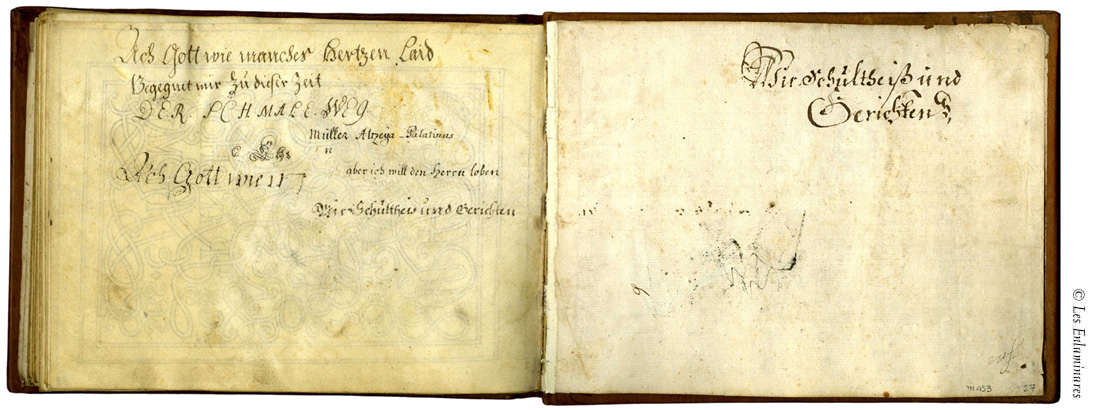 Ach Gott wie mancher Hertzen Laid
Begegnet mir Zu dieser Zeit
DER. SCHMALE. WEG
Müller Altzeÿa-Palatinus
n
Ach Gott wie
aber ich will den Herrn loben
Wir Schultheis und Gerichten
Wir Schultheiß und
Gerichten
9
m 453
27
© Les Enluminures